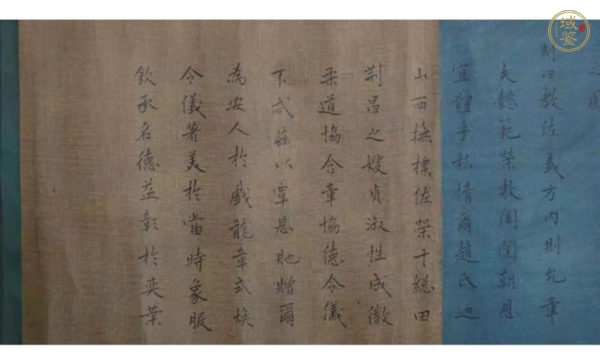 制曰教佐義方內則允章
夫懿範榮敷閨閫朝恩
宜體乎私情爾趙氏迺
山西撫標佐榮千總田
荊昌之嫂貞淑性成徽
柔道協含章協德令儀
下忒茲以覃恩貤贈爾
為安人於戲龍章式煥
令儀著美於當時象服
欽承名德益彰於奕葉
域鉴